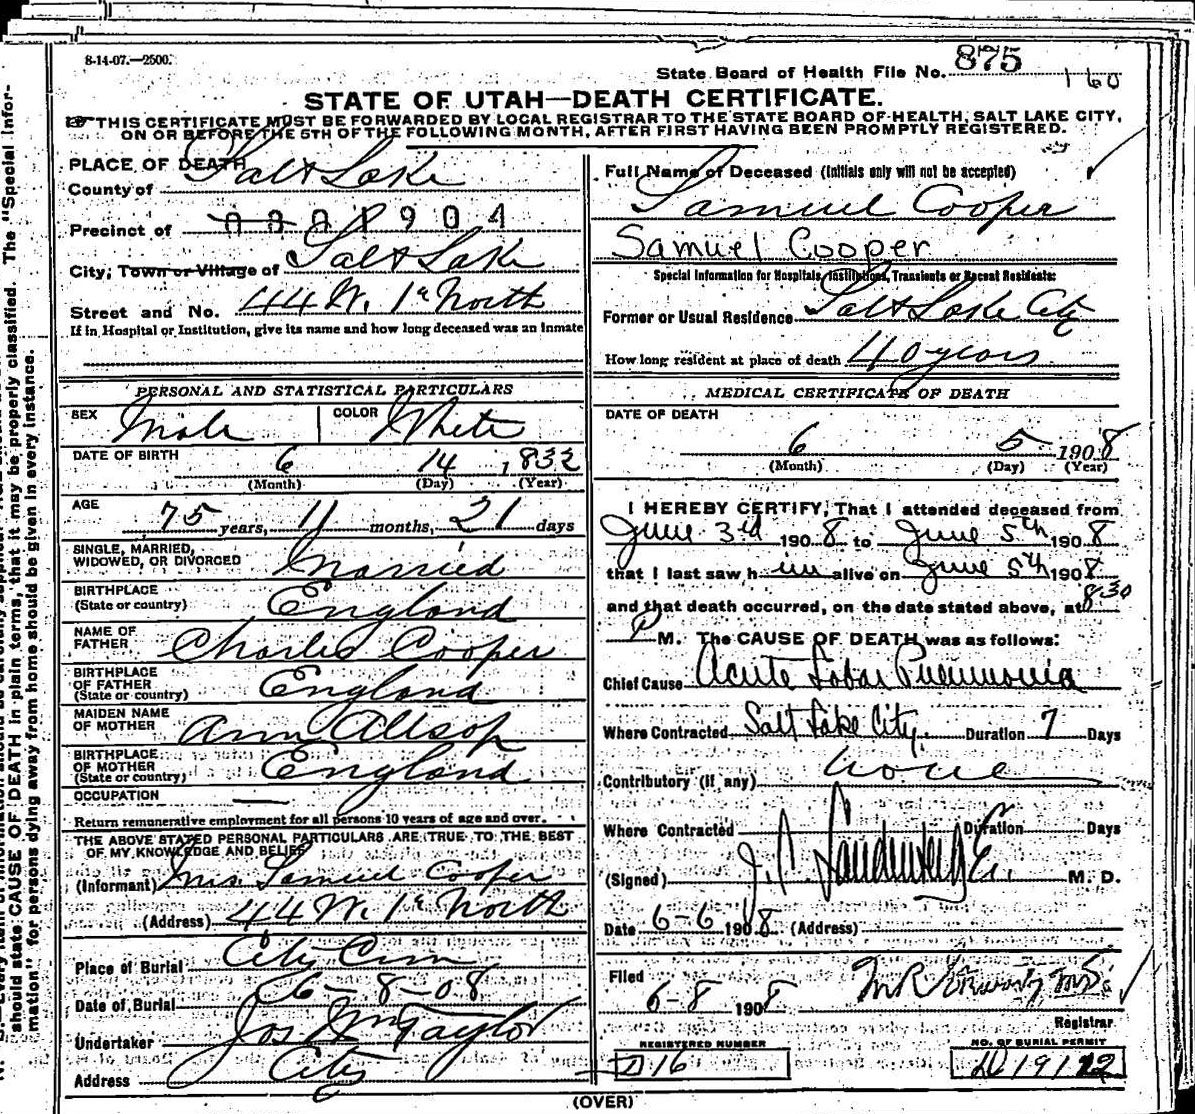 8-14-07.—2500.
State Board of Health File No. 875
160
STATE OF UTAH—DEATH CERTIFICATE.
THIS CERTIFICATE MUST BE FORWARDED BY LOCAL REGISTRAR TO THE STATE BOARD OF HEALTH, SALT LAKE CITY,
ON OR BEFORE THE 5TH OF THE FOLLOWING MONTH, AFTER FIRST HAVING BEEN PROMPTLY REGISTERED.
PLACE OF DEATH
County of Salt Lake
Precinct of
0801904
City, Town or Village of Salt Lake
Street and No. 44 W. 1st North
If in Hospital or Institution, give its name and how long deceased was an Inmate
PERSONAL AND STATISTICAL PARTICULARS
SEX Male COLOR White
DATE OF BIRTH 6 14 1832
(Month) (Day) (Year)
AGE 75 years, 11 months, 21 days
SINGLE, MARRIED,
WIDOWED, OR DIVORCED Married
BIRTHPLACE
(State or country) England
NAME OF
FATHER Charles Cooper
BIRTHPLACE
OF FATHER
(State or country) England
MAIDEN NAME
OF MOTHER Ann Allsop
BIRTHPLACE
OF MOTHER
(State or country) England
OCCUPATION —
Return remunerative employment for all persons 10 years of age and over.
THE ABOVE STATED PERSONAL PARTICULARS ARE TRUE TO THE BEST
OF MY KNOWLEDGE AND BELIEF
(Informant) Mrs. Samuel Cooper
(Address) 44 W. 1st North
Place of Burial City Cem
Date of Burial 6-8-08
Undertaker Jos Wm Taylor
Address City
Full Name of Deceased (Initials only will not be accepted)
Samuel Cooper
Samuel Cooper
Special Information for Hospitals, Institutions, Transients or Recent Residents:
Former or Usual Residence Salt Lake City
How long resident at place of death 40 years
MEDICAL CERTIFICATE OF DEATH
DATE OF DEATH
6 5 1908
(Month) (Day) (Year)
I HEREBY CERTIFY, That I attended deceased from
June 3rd 1908 to June 5th 1908
that I last saw him alive on June 5th 1908
and that death occurred, on the date stated above, at 8:30
P M. The CAUSE OF DEATH was as follows:
Chief Cause Acute Lobar Pneumonia
Where Contracted Salt Lake City. Duration 7 Days
Contributory (if any) none
Where Contracted Duration Days
(Signed) J. P. M. D.
Date 6-6 1908 (Address)
Filed
6-8 1908
Registrar
REGISTERED NUMBER
D16
NO. OF BURIAL PERMIT
D19112
(OVER)
should state CAUSE OF DEATH in plain terms, that it may be properly classified. The "Special Infor-
mation" for persons dying away from home should be given in every instance.